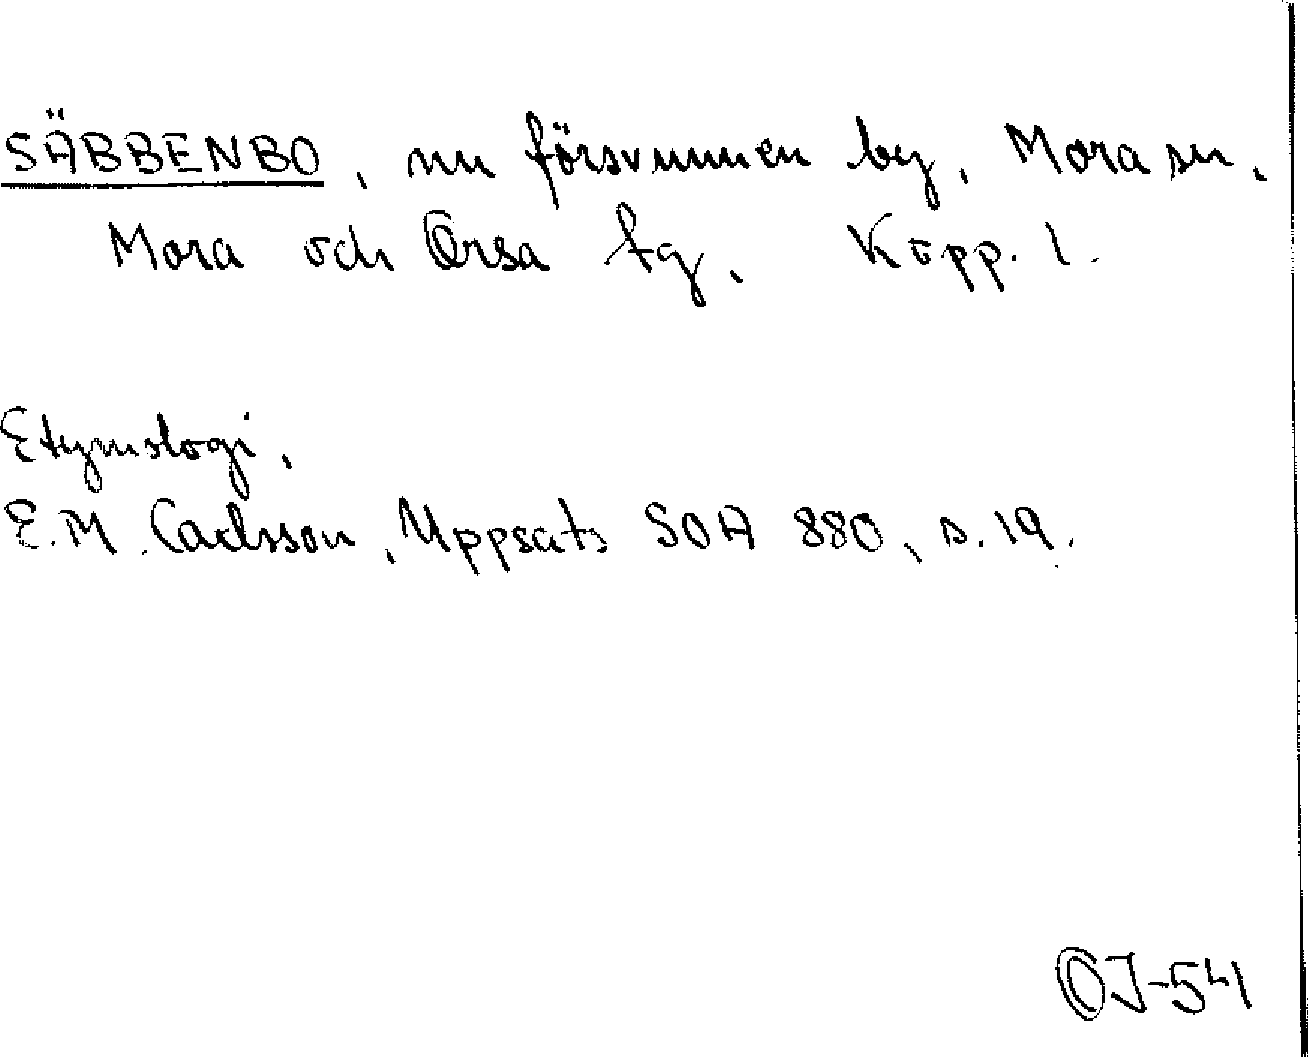 SÄBBENBO, nu försvunnen by, Mora sn,
Mora och Orsa tg, Kopp. l.
Etymologi,
E.M. Carlsson, Uppsats SOA 880, s. 19.
OJ-54